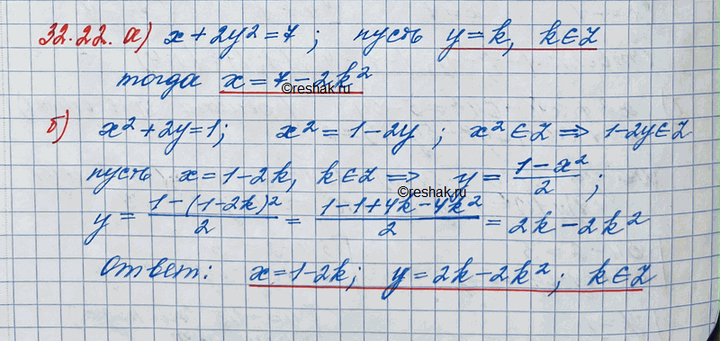 32.22. а) x + 2y² = 7 ; пусть y = k, k ∈ Z
тогда x = 7 - 2k²
©reshak.ru
б) x² + 2y = 1; x² = 1 - 2y ; x² ∈ Z ⟹ 1-2y ∈ Z
пусть x = 1 - 2k, k ∈ Z ⟹ y = (1 - x²)/2 ;
©reshak.ru
y = (1 - (1-2k)²)/2 = (1 - 1 + 4k - 4k²)/2 = 2k - 2k²
Ответ: x = 1-2k; y = 2k - 2k²; k ∈ Z